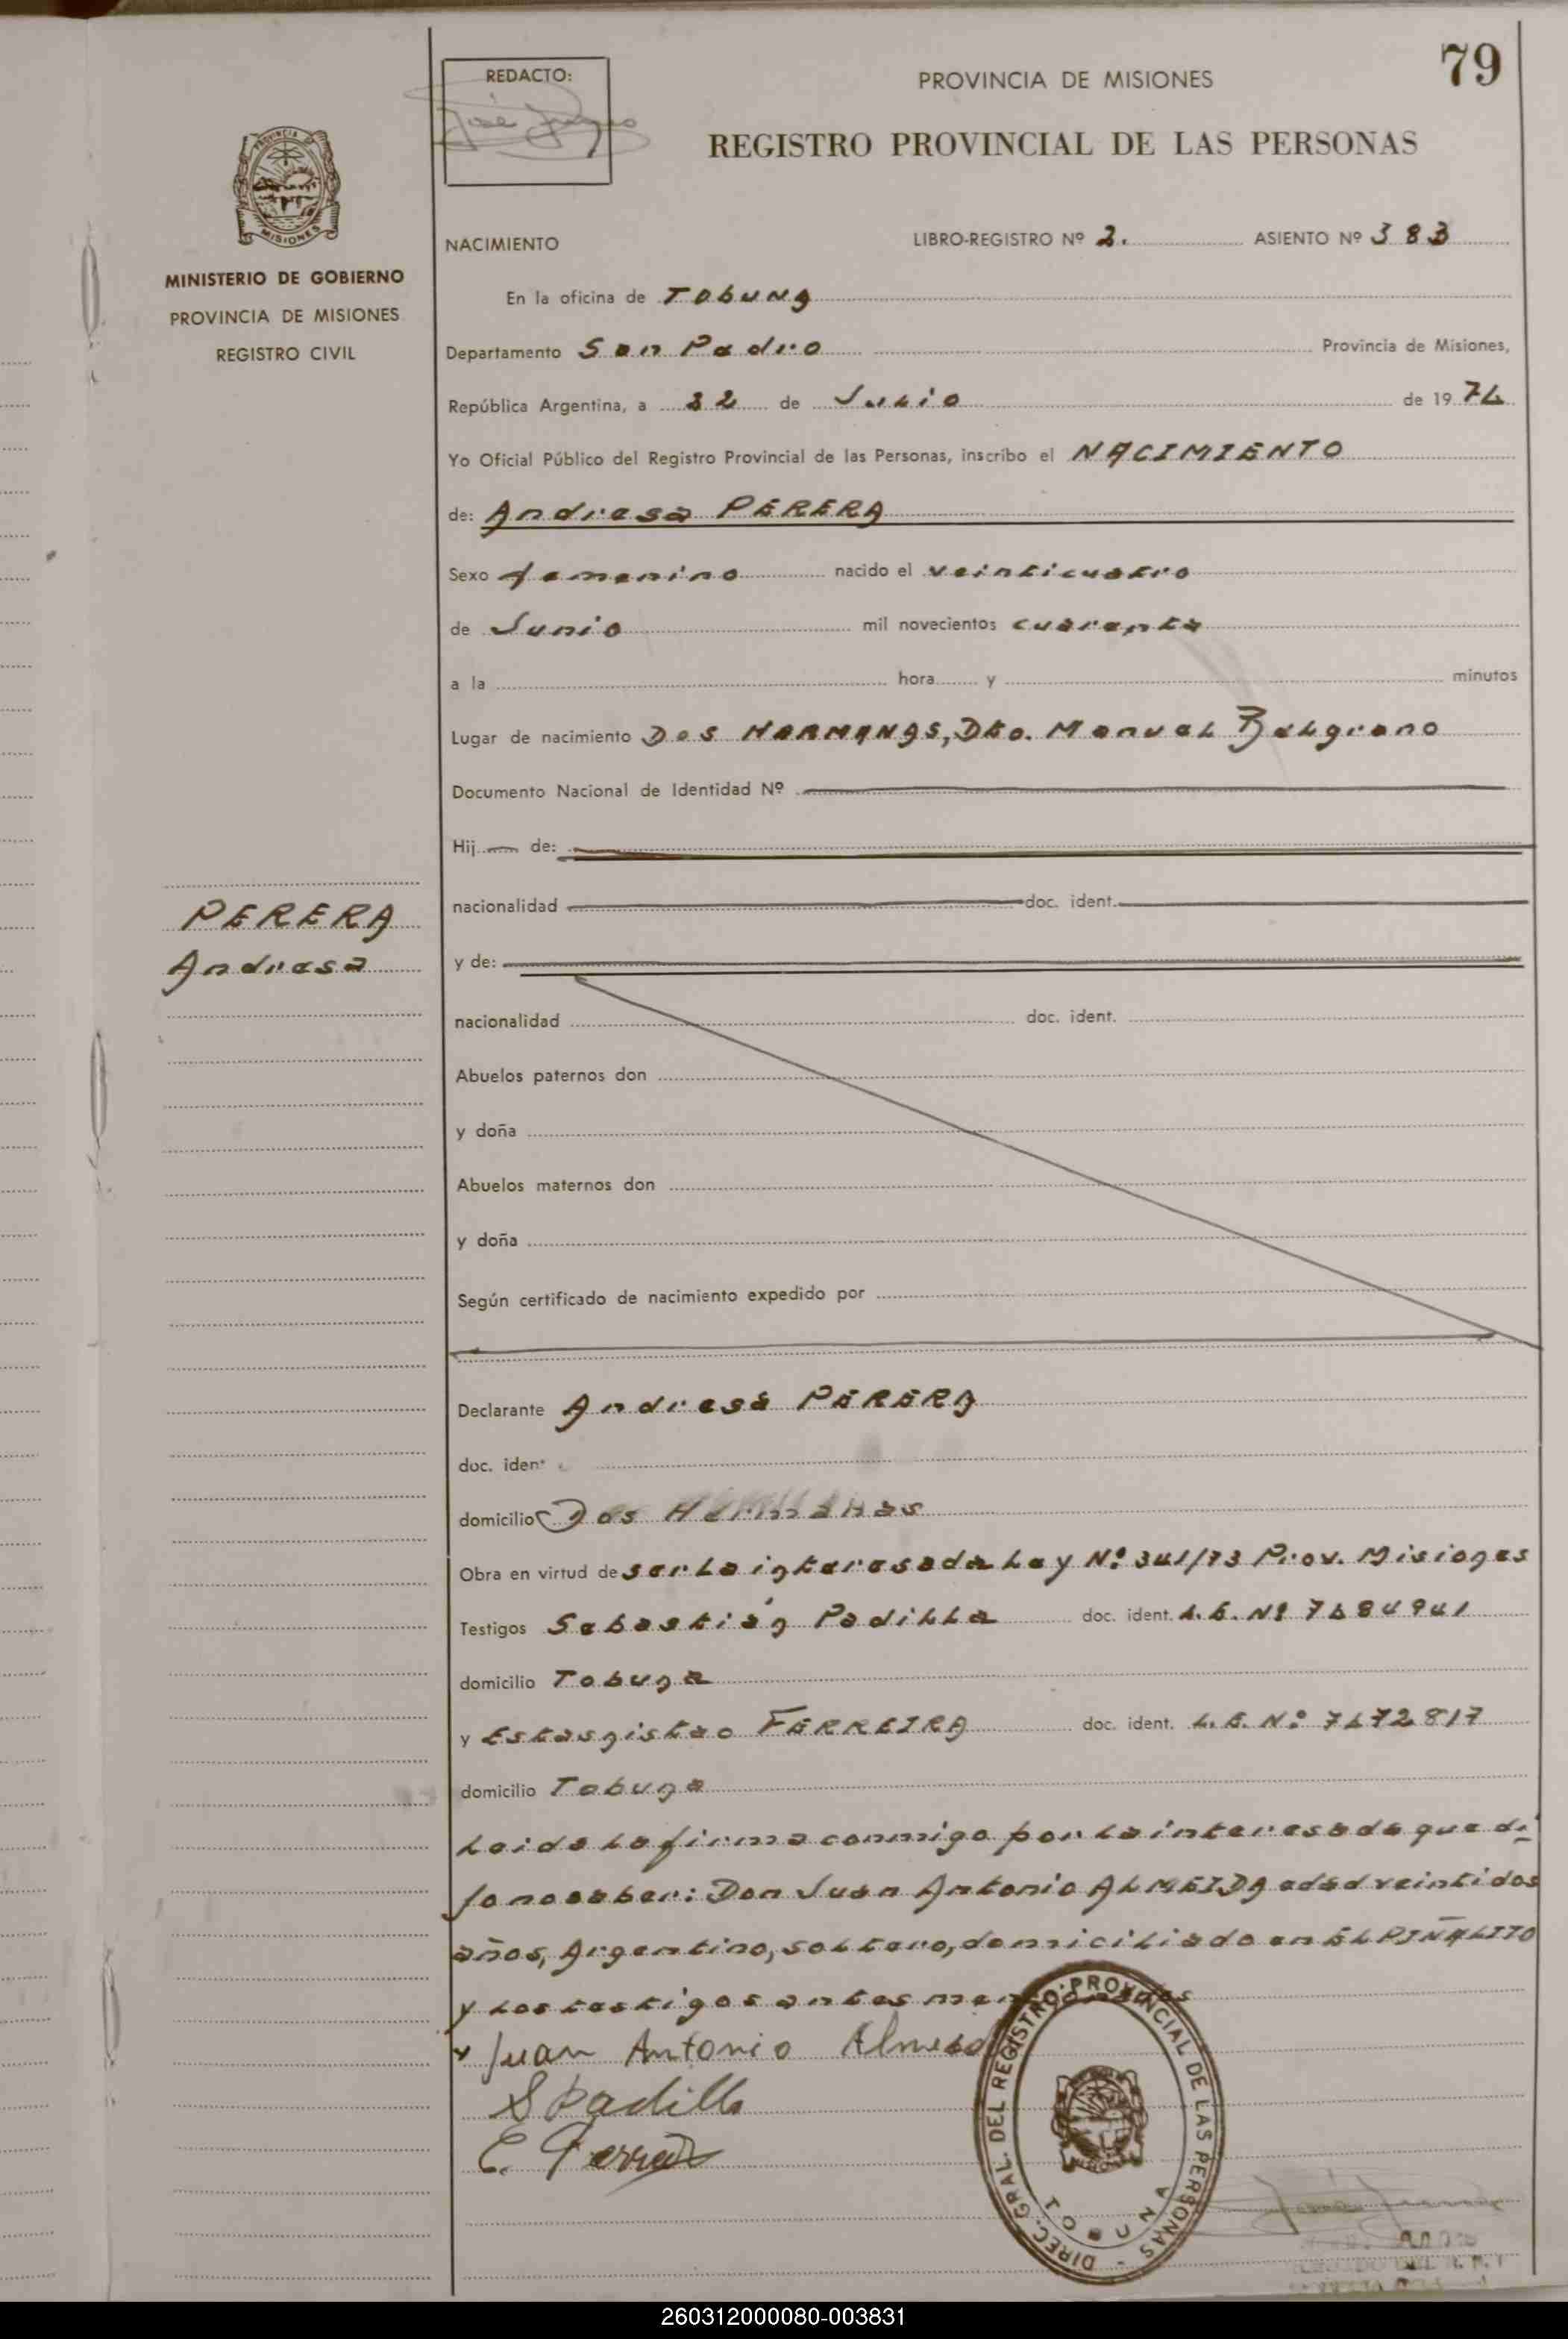 79
REDACTO:
PROVINCIA DE MISIONES
REGISTRO PROVINCIAL DE LAS PERSONAS
PROVINCIA DE
MISIONES
MINISTERIO DE GOBIERNO
PROVINCIA DE MISIONES
REGISTRO CIVIL
NACIMIENTO LIBRO-REGISTRO Nº 2. ASIENTO Nº 383
En la oficina de Tobuna
Departamento San Pedro Provincia de Misiones,
República Argentina, a 22 de Julio de 1974
Yo Oficial Público del Registro Provincial de las Personas, inscribo el NACIMIENTO
de: Andresa PERERA
Sexo femenino nacido el veinticuatro
de Junio mil novecientos cuarenta
a la hora y minutos
Lugar de nacimiento Dos HERMANAS, Dto. Manuel Belgrano
Documento Nacional de Identidad Nº
Hij de:
nacionalidad doc. ident.
PERERA
Andresa
y de:
nacionalidad doc. ident.
Abuelos paternos don
y doña
Abuelos maternos don
y doña
Según certificado de nacimiento expedido por
Declarante Andresa PERERA
doc. ident
domicilio Dos Hermanas
Obra en virtud de ser la interesada Ley Nº 341/73 Prov. Misiones
Testigos Sebastián Padilla doc. ident. L.E. Nº
domicilio Tobuna
y Estasnistao FERREIRA doc. ident. L.E. Nº
domicilio Tobuna
Leida la firma conmigo por la interesada que di
jo no saber: Don Juan Antonio ALMEIDA edad veintidos
años, Argentino, soltero, domiciliado en EL PIÑALITO
y los testigos antes mencionados
Juan Antonio Almeida
S Padilla
E. Ferreira
DIREC. GRAL. DEL REGISTRO PROVINCIAL DE LAS PERSONAS -
TOBUNA
260312000080-003831